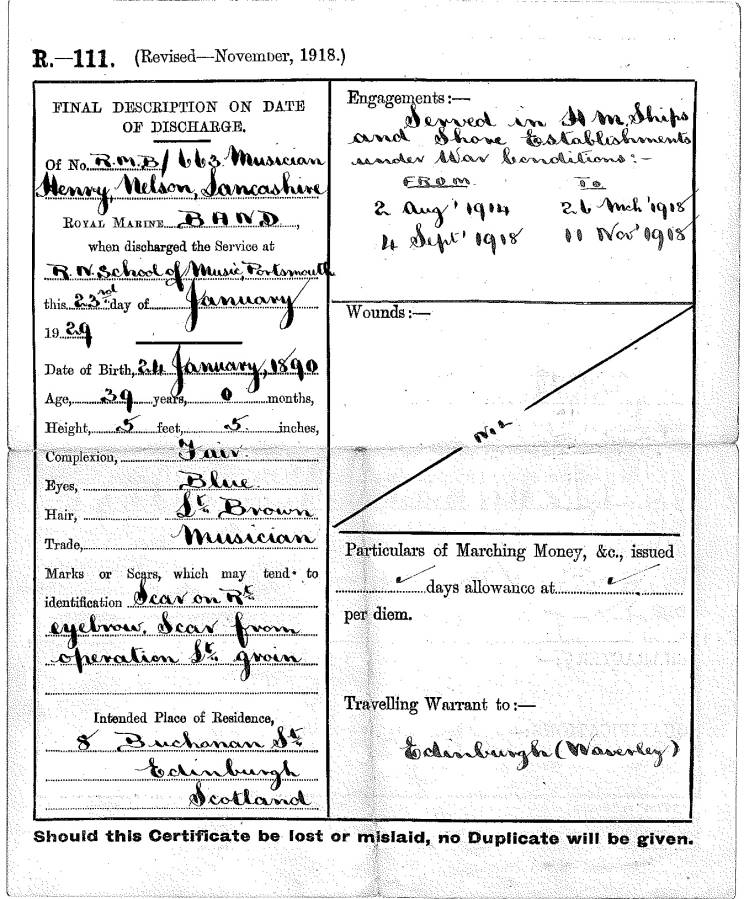 R.—111. (Revised—November, 1918.)
FINAL DESCRIPTION ON DATE
OF DISCHARGE.
Of No. R.M.B/663. Musician
Henry, Nelson, Lancashire
ROYAL MARINE BAND,
when discharged the Service at
R.N. School of Music, Portsmouth
this 23rd day of January
1929
Date of Birth, 24 January, 1890
Age, 39 years, 0 months,
Height, 5 feet, 5 inches,
Complexion, Fair
Eyes, Blue
Hair, Lt. Brown
Trade, Musician
Marks or Scars, which may tend to
identification Scar on Rt.
eyebrow. Scar from
operation Lt. groin
Intended Place of Residence,
8 Buchanan St.
Edinburgh
Scotland
Engagements:—
Served in H M. Ships
and Shore Establishments
under War Conditions:-
FROM To
2 Aug' 1914 26 Mch '1918
4 Sept' 1918 11 Nov' 1918
Wounds:—
Particulars of Marching Money, &c., issued
days allowance at
per diem.
Travelling Warrant to:—
Edinburgh (Waverley)
Should this Certificate be lost or mislaid, no Duplicate will be given.